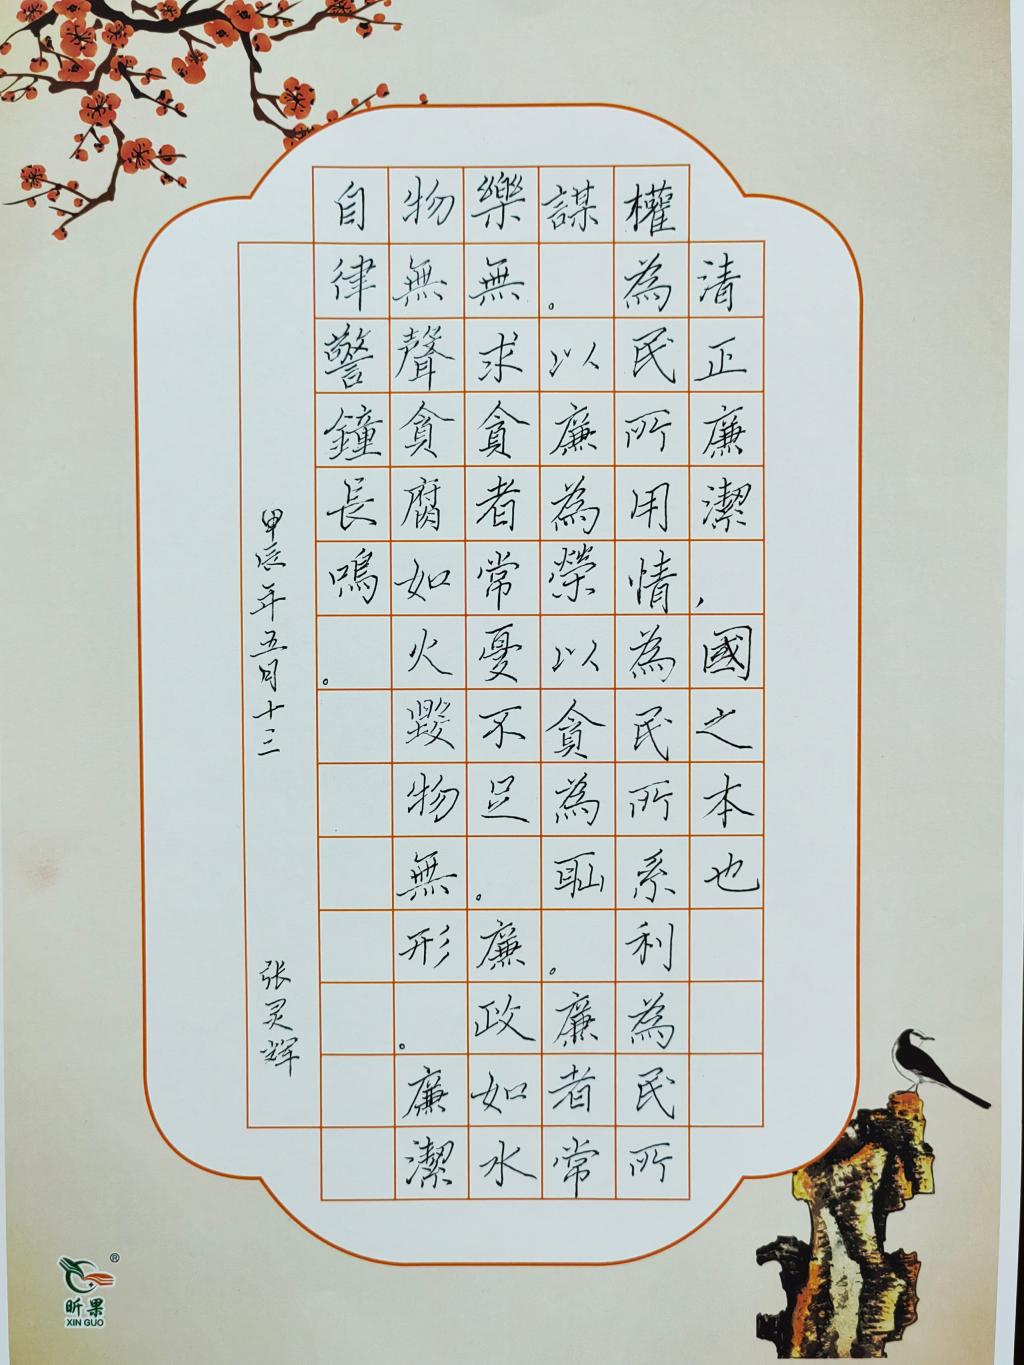 清正廉潔，國之本也
權為民所用情為民所系利為民所
謀。以廉為榮以貪為恥。廉者常
樂無求貪者常憂不足。廉政如水
物無聲貪腐如火毀物無形。廉潔
自律警鐘長鳴。
甲辰年五月十三 张灵辉
®
昕果
XIN GUO